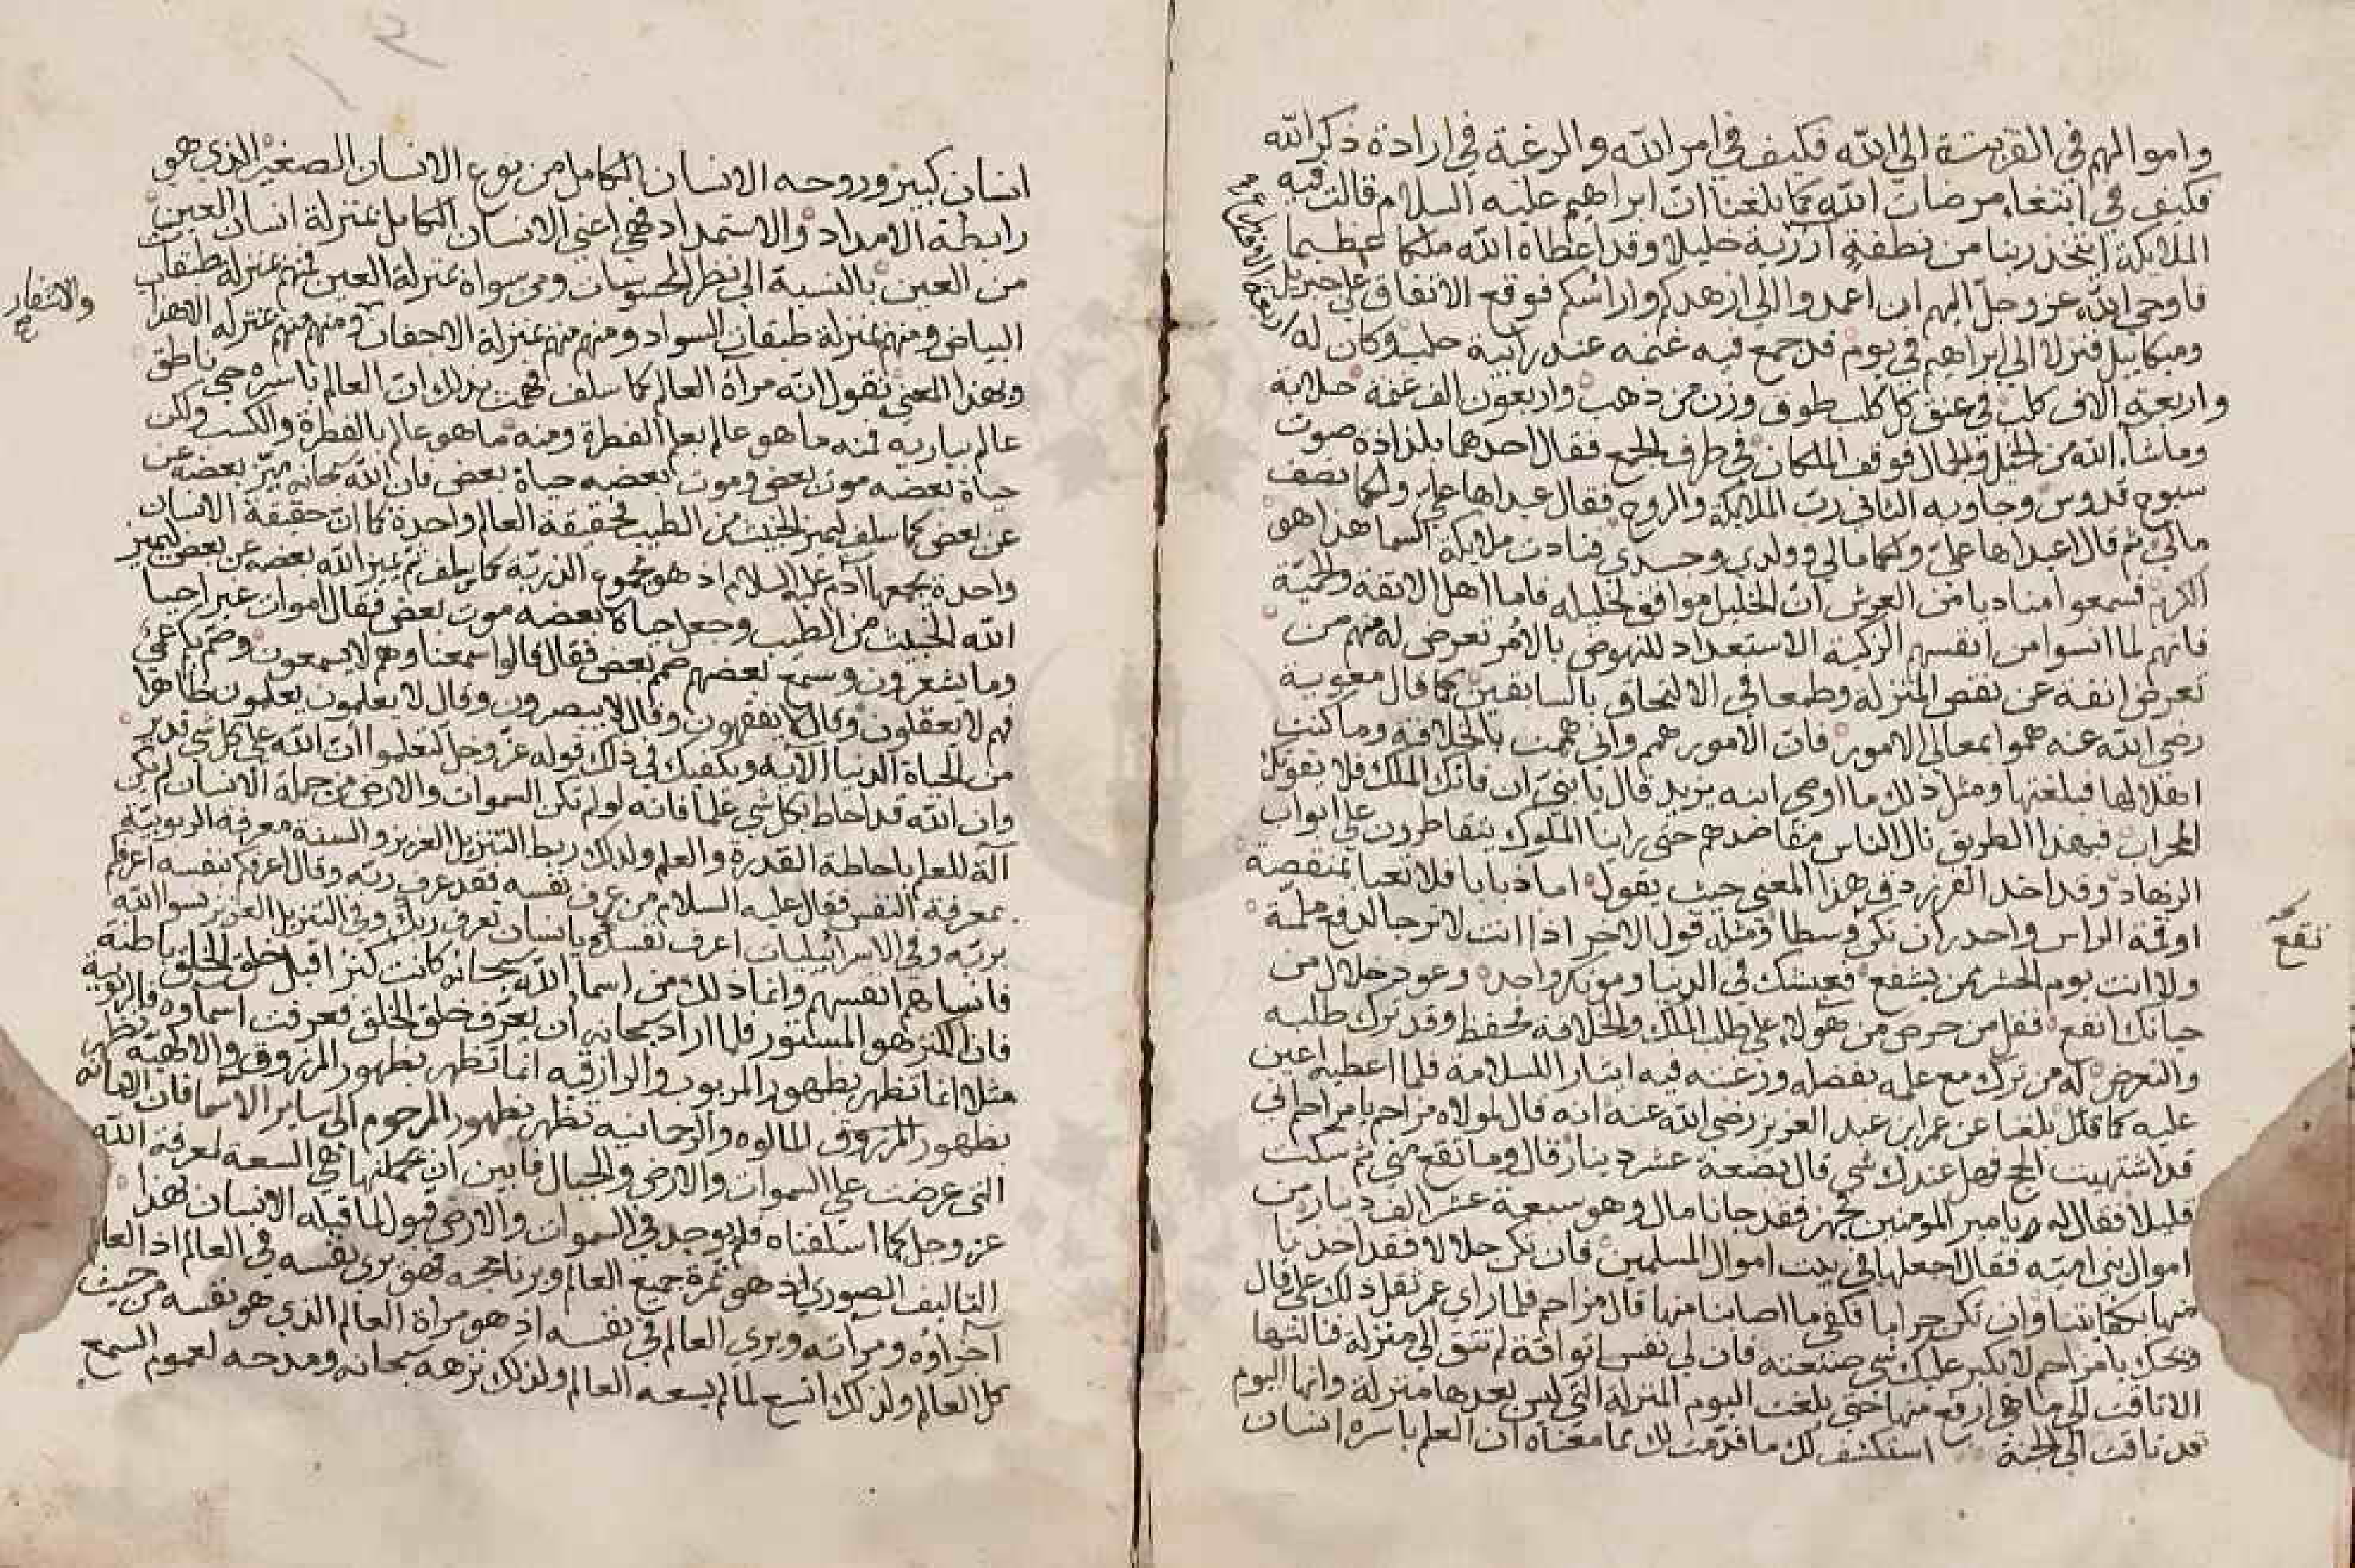 واموالهم في القربة الى الله فكيف في امر الله والرغبة في ارادة ذكر الله
فكيف في ابتغاء مرضات الله كما بلغنا ان ابراهيم عليه السلام قالت فيه
الملايكة اتخذ ربنا من نطفة خليلا وقد اعطاه الله ملكا عظيما
فاوحى الله عز وجل اليهم ان اعمدوا الى ازهدكم وارأسكم فوقع الاتفاق على جبريل
وميكاييل فنزلا الى ابراهيم في يوم قد جمع فيه غنمه عند رابية حلب وكان له
اربعة الاف راع
واربعة الاف كلب في عنق كل كلب طوق وزن من ذهب واربعون الف غنمة حلابة
وما شاء الله من الخيل والجمال فوقف الملكان في طرف الجمع فقال احدهما بلذاذة صوت
سبوح قدوس وجاوبه الثاني رب الملايكة والروح فقال عيداها علي ولكما نصف
مالي ثم قال عيداها علي ولكما مالي وولدي وجسدي فنادت ملايكة السما هذا هو
الكرم فسمعوا مناديا من العرش ان الخليل موافق لخليله فاما اهل الانفة والحمية
فانهم لما انسوا من انفسهم الزكية الاستعداد للنهوض بالامر تعرض له منهم من
تعرض انفة عن نقص المنزلة وطمعا في الالتحاق بالسابقين كما قال معوية
رضي الله عنه هموا بمعالي الامور فان الامور همم واني هممت بالخلافة وما كنت
اهلا لها فبلغتها ومثل ذلك ما اوصى ابنه يزيد قال يا بني ان فاتك الملك فلا يفوتك
المحراب فبهذا الطريق نال الناس مقاصدهم حتى راينا الملوك يتقاطرون على ابواب
الزهاد وقد اخذ الفرزدق هذا المعنى حيث يقول اما ذبابا فلا تعبا بمنقصة
او قمة الراس واحذر ان تكن وسطا ومثله قول الاخر اذا انت لا ترجا لدفع ملمة
ولا انت يوم الحشر ممن يشفع فعيشك في الدنيا وموتك واحد وعود خلال من
حياتك انفع فقل من حرص من هولاء على طلب الملك والخلافة فحفظ وقد ترك طلبه
نفع
والتعرض له من ترك مع علمه بفضله ورغبته فيه ايثارا للسلامة فلما اعطيه اعين
عليه كما قيل بلغنا عن عمر ابن عبد العزيز رضي الله عنه انه قال لمولاه مزاحم يا مزاحم اني
قد اشتهيت الحج فهل عندك شي قال بضعة عشر دينار قال وما تقع مني ثم سكت
قليلا فقال له يا مير المومنين تجهز فقد جانا مال وهو سبعة عشر الف دينار من
اموال بني امية فقال اجعلها في بيت اموال المسلمين فان تكن حلالا فقد اخذنا
منها كفايتنا وان تكن حراما فكفى ما اصابنا منها قال مزاحم فلما راى عمر ثقل ذلك علي قال
ويحك يا مزاحم لا يكبر عليك شي صنعته فان لي نفسا تواقة لم تتق الى منزلة فنالتها
الا تاقت الى ما هي ارفع منها حتى بلغت اليوم المنزلة التي ليس بعدها منزلة وانها اليوم
قد تاقت الى الجنة استكشف لك ما قدمت لك بما معناه ان العلم باسره انسان
انسان كبير وروحه الانسان الكامل من نوع الانسان الصغير الذي هو
رابطة الامداد والاستمداد فهي اعني الانسان الكامل بمنزلة انسان العين
من العين بالنسبة الى نظر المحسوسات ومن سواه بمنزلة العين فمنهم بمنزلة طبقات
والاشفار
البياض ومنهم بمنزلة طبقات السواد ومنهم بمنزلة الاجفان ومنهم بمنزلة الاهداب
وبهذا المعنى نقول انه مراة العالم كما سلف فهمت بذلك ان العالم باسره حي ناطق
عالم بباريه فمنه ما هو عالم بعلم الفطرة ومنه ما هو عالم بالفطرة والكسب ولكن
حياة بعضه موت بعض وموت بعضه حياة بعض فان الله سبحانه ميز بعضه عن
عن بعض كما سلف ليميز الخبيث من الطيب فحقيقة العالم واحدة كما ان حقيقة الانسان
واحدة يجمعها ادم عليه السلام اذ هو مجموع الذرية كما سلف ثم ميز الله بعضه عن بعض ليميز
الله الخبيث من الطيب وجعل حياة بعضه موت بعض فقال اموات غير احيا
وما يشعرون وسمع بعضهم صمم بعض فقال قالوا سمعنا وهم لا يسمعون وصم بكم عمي
فهم لا يعقلون وقال لا يفقهون وقال لا يبصرون وقال لا يعلمون يعلمون ظاهرا
من الحياة الدنيا الآية ويكفيك في ذلك قوله عز وجل لتعلموا ان الله على كل شي قدير
وان الله قد احاط بكل شي علما فانه لو لم تكن السموات والارض من جملة الانسان لم يكن
آلة للعلم باحاطة القدرة والعلم ولذلك ربط التنزيل العزيز والسنة معرفة الربوبية
بمعرفة النفس فقال عليه السلام من عرف نفسه فقد عرف ربه وقال اعرفكم بنفسه اعرفكم
بربه وفي الاسرائيليات اعرف نفسك يا انسان تعرف ربك وفي التنزيل العزيز نسوا الله
فانساهم انفسهم وانما ذلك من اسما الله سبحانه كانت كنزا قبل خلق الخلق باطنة
فان الكنز هو المستور فلما اراد سبحانه ان يعرف خلق الخلق فعرفت اسماوه فالربوبية
مثلا انما تظهر بظهور المربوب والرازقيه انما تظهر بظهور المرزوق والالهية تظهر
بظهور المالوه والرحمانيه تظهر بظهور المرحوم الى ساير الاسما فان الامانة
التي عرضت على السموات والارض والجبال فابين ان يحملنها هي السعة لمعرفة الله
عز وجل كما اسلفناه فلم يوجد في السموات والارض قبول لما قبله الانسان بهذا
التاليف الصوري اذ هو ثمرة جميع العالم وبرنامجه فهو يرى نفسه في العالم اذ العالم
اجزاوه ومرآته ويرى العالم في نفسه اذ هو مراة العالم الذي هو نفسه من حيث
كل العالم ولذلك اتسع لما لم يسعه العالم ولذلك نزهه سبحانه ومدحه لعموم السمع